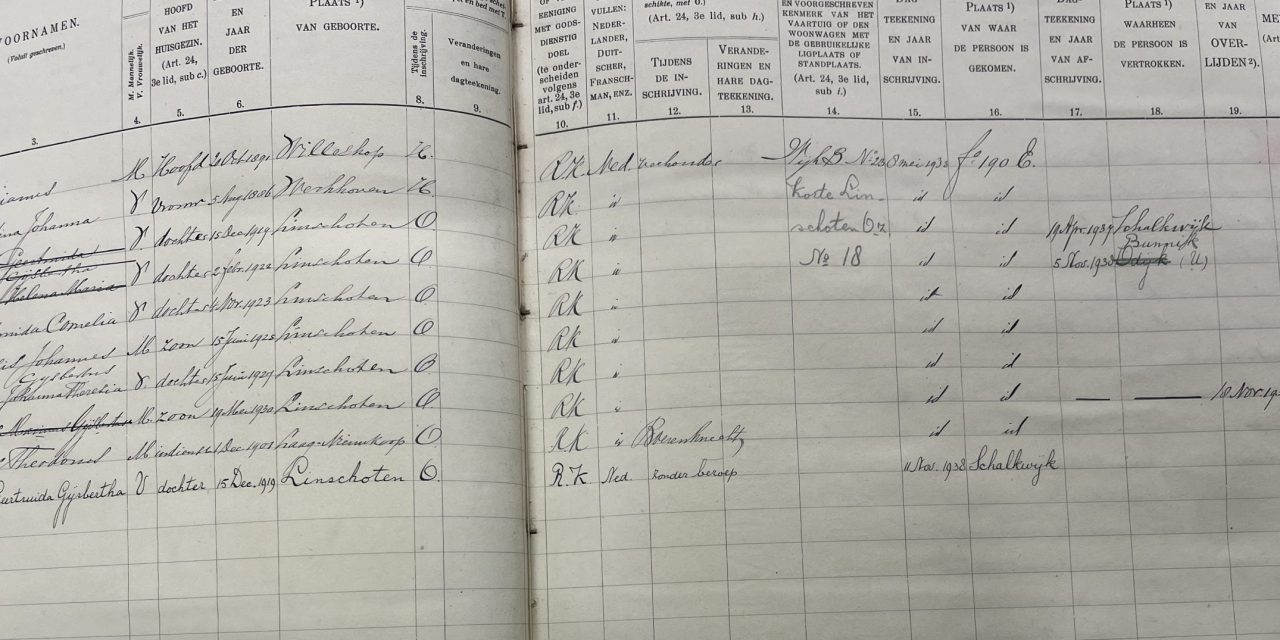 VOORNAMEN.
(Voluit geschreven.)
3.
M. Mannelijk.
V. Vrouwelijk.
4.
HOOFD
VAN HET
HUISGEZIN.
(Art. 24,
3e lid, sub c.)
5.
EN
JAAR
DER
GEBOORTE.
6.
PLAATS 1)
VAN GEBOORTE.
Tijdens de
inschrijving.
8.
Veranderingen
en hare
dagteekening.
9.
EENIGING
MET GODS-
DIENSTIG
DOEL
(te onder-
scheiden
volgens
art. 24, 3e
lid, sub f.)
10.
VULLEN:
NEDER-
LANDER,
DUIT-
SCHER,
FRANSCH-
MAN, ENZ.
11.
(Art. 24, 3e lid, sub h.)
TIJDENS
DE IN-
SCHRIJVING.
12.
VERANDE-
RINGEN EN
HARE DAG-
TEEKENING.
13.
EN VOORGESCHREVEN
KENMERK VAN HET
VAARTUIG OF DEN
WOONWAGEN MET
DE GEBRUIKELIJKE
LIGPLAATS OF
STANDPLAATS.
(Art. 24, 3e lid,
sub i.)
14.
TEEKENING
EN JAAR
VAN IN-
SCHRIJVING.
15.
PLAATS 1)
VAN WAAR
DE PERSOON IS
GEKOMEN.
16.
TEEKENING
EN JAAR
VAN AF-
SCHRIJVING.
17.
PLAATS 1)
WAARHEEN
DE PERSOON IS
VERTROKKEN.
18.
EN JAAR
VAN
OVER-
LIJDEN 2).
19.
M Hoofd 20 Oct 1891 Willeskop H. RK Ned. Wijk B No 23 8 mei 193 fo 190 E.
Johanna V Vrouw 5 Aug 1886 Werkhoven H RK Korte Lin- id id
V. dochter 15 Dec. 1919 Linschoten O RK schoten Oz id id 19 Apr. 1937 Schalkwijk
Helena Maria V dochter 2 febr. 1922 Linschoten O RK No 18 id id 5 Nov. 1938 Odijk Bunnik (U)
Cornelia V dochter 4 Nov. 1923 Linschoten O RK id id
Johannes Gijsbertus M zoon 15 Juni 1925 Linschoten O RK id id
Johanna Theresia V. dochter 15 Juni 1927 Linschoten O RK id id
M. zoon 19 Mei 1930 Linschoten O RK id id — — 18 Nov. 19
Theodorus M 1 Dec 1901 Laag-Nieuwkoop O RK Boerenknecht id id
Geertruida Gijsbertha V dochter 15 Dec. 1919 Linschoten O. R.K. Ned. zonder beroep 11 Nov. 1938 Schalkwijk